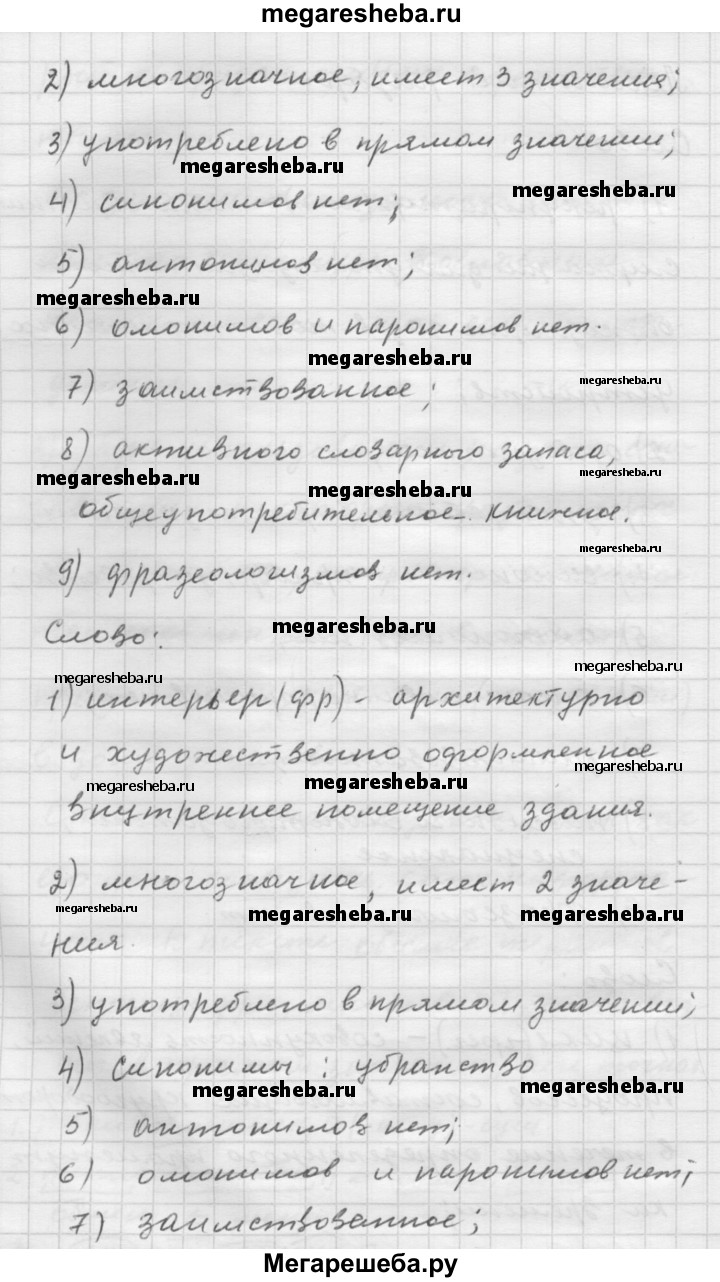 megaresheba.ru
2) многозначное, имеет 3 значения;
3) употреблено в прямом значении;
megaresheba.ru
megaresheba.ru
4) синонимов нет;
5) антонимов нет;
megaresheba.ru
6) омонимов и паронимов нет.
megaresheba.ru
7) заимствованное;
megaresheba.ru
8) активного словарного запаса,
megaresheba.ru
megaresheba.ru
общеупотребительное - книжное.
megaresheba.ru
9) фразеологизмов нет.
Слово:
megaresheba.ru
megaresheba.ru
megaresheba.ru
1) интерьер (фр) - архитектурно
и художественно оформленное
megaresheba.ru
megaresheba.ru
megaresheba.ru
внутреннее помещение здания.
2) многозначное, имеет 2 значе-
megaresheba.ru
megaresheba.ru
megaresheba.ru
ния.
3) употреблено в прямом значении;
4) синонимы: убранство
megaresheba.ru
megaresheba.ru
5) антонимов нет;
6) омонимов и паронимов нет;
7) заимствованное;
Мегарешеба.ру